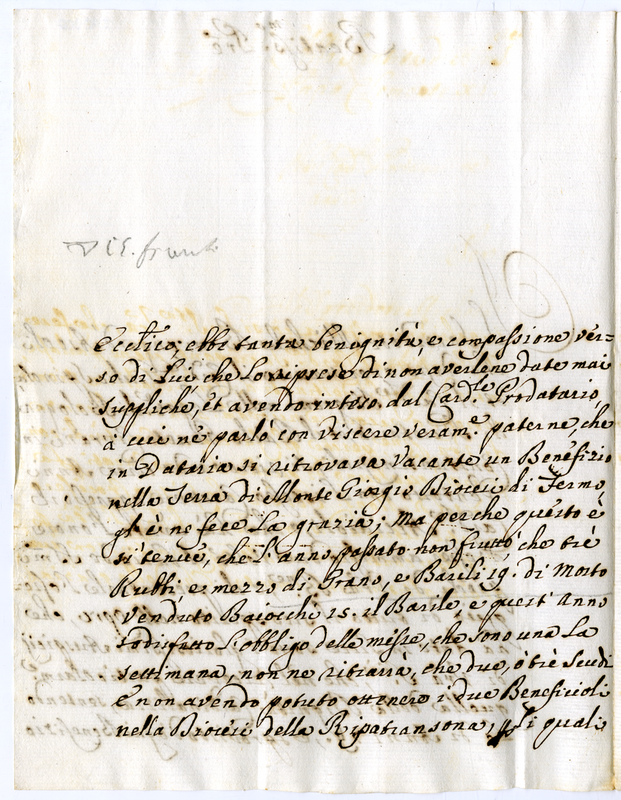 Ecclico, ebbe tanta benignità, e compassione ver=
so di Lui che Lo riprese di non averlene date mai
suppliche, et avendo inteso dal Card.le Prodatario,
à cui nè parlò con viscere veram.e paterne, che
in Dataria si ritrovava Vacante un Benefizio
nella Terra di Monte Giorgio Diocesi di Fermo,
gl'è ne fece La grazia; Ma perche questo è
si tenue, che L'anno passato non fruttò che trè
Rubbi, e mezzo di Grano, e Barili 19. di Mosto
venduto Baiocchi 15. il Barile, e quest'Anno
sodisfatto L'obbligo delle messe, che sono una La
settimana, non ne ritrarrà, che due, ò trè Scudi
E non avendo potuto ottenere i due Beneficioli
nella Diocesi della Ripatransona, Li quali